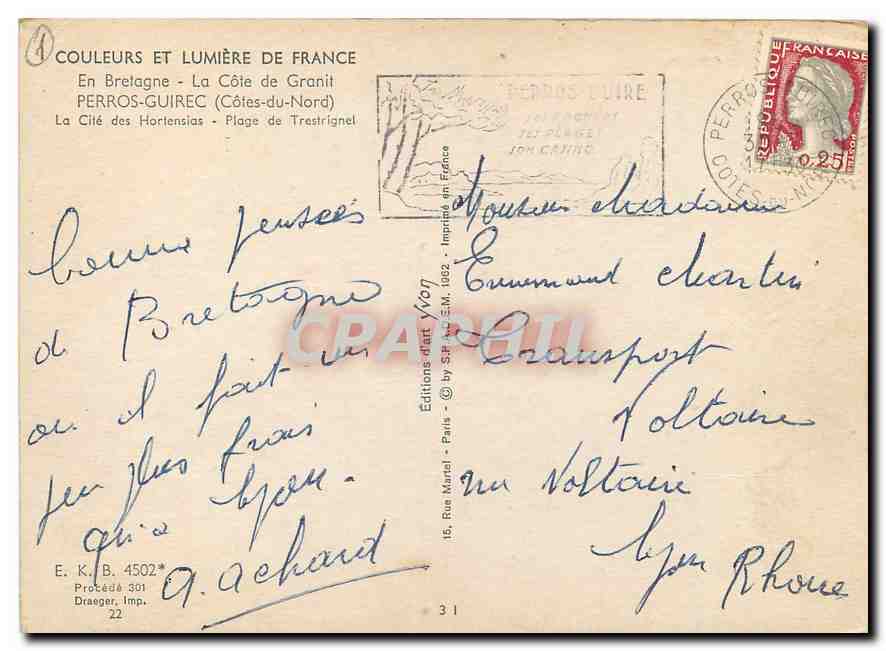 1
COULEURS ET LUMIÈRE DE FRANCE
En Bretagne - La Côte de Granit
PERROS-GUIREC (Côtes-du-Nord)
La Cité des Hortensias - Plage de Trestrignel
PERROS GUIREC
SES PLAGES
SON CASINO
PERROS GUIREC
COTES DU NORD
REPUBLIQUE FRANÇAISE
POSTES
0,25
bonne pensées
de Bretagne
ou il fait un
peu plus frais
qu'a Lyon.
A. Achard
E. K. B. 4502*
Procédé 301
Draeger, Imp.
22
Éditions d'art Yvon
15, Rue Martel - Paris - © by S.P.A.D.E.M. 1962 - Imprimé en France
3 1
Monsieur Madame
Martin
Transport
Voltaire
rue Voltaire
Lyon
Rhone
CPAPHIL